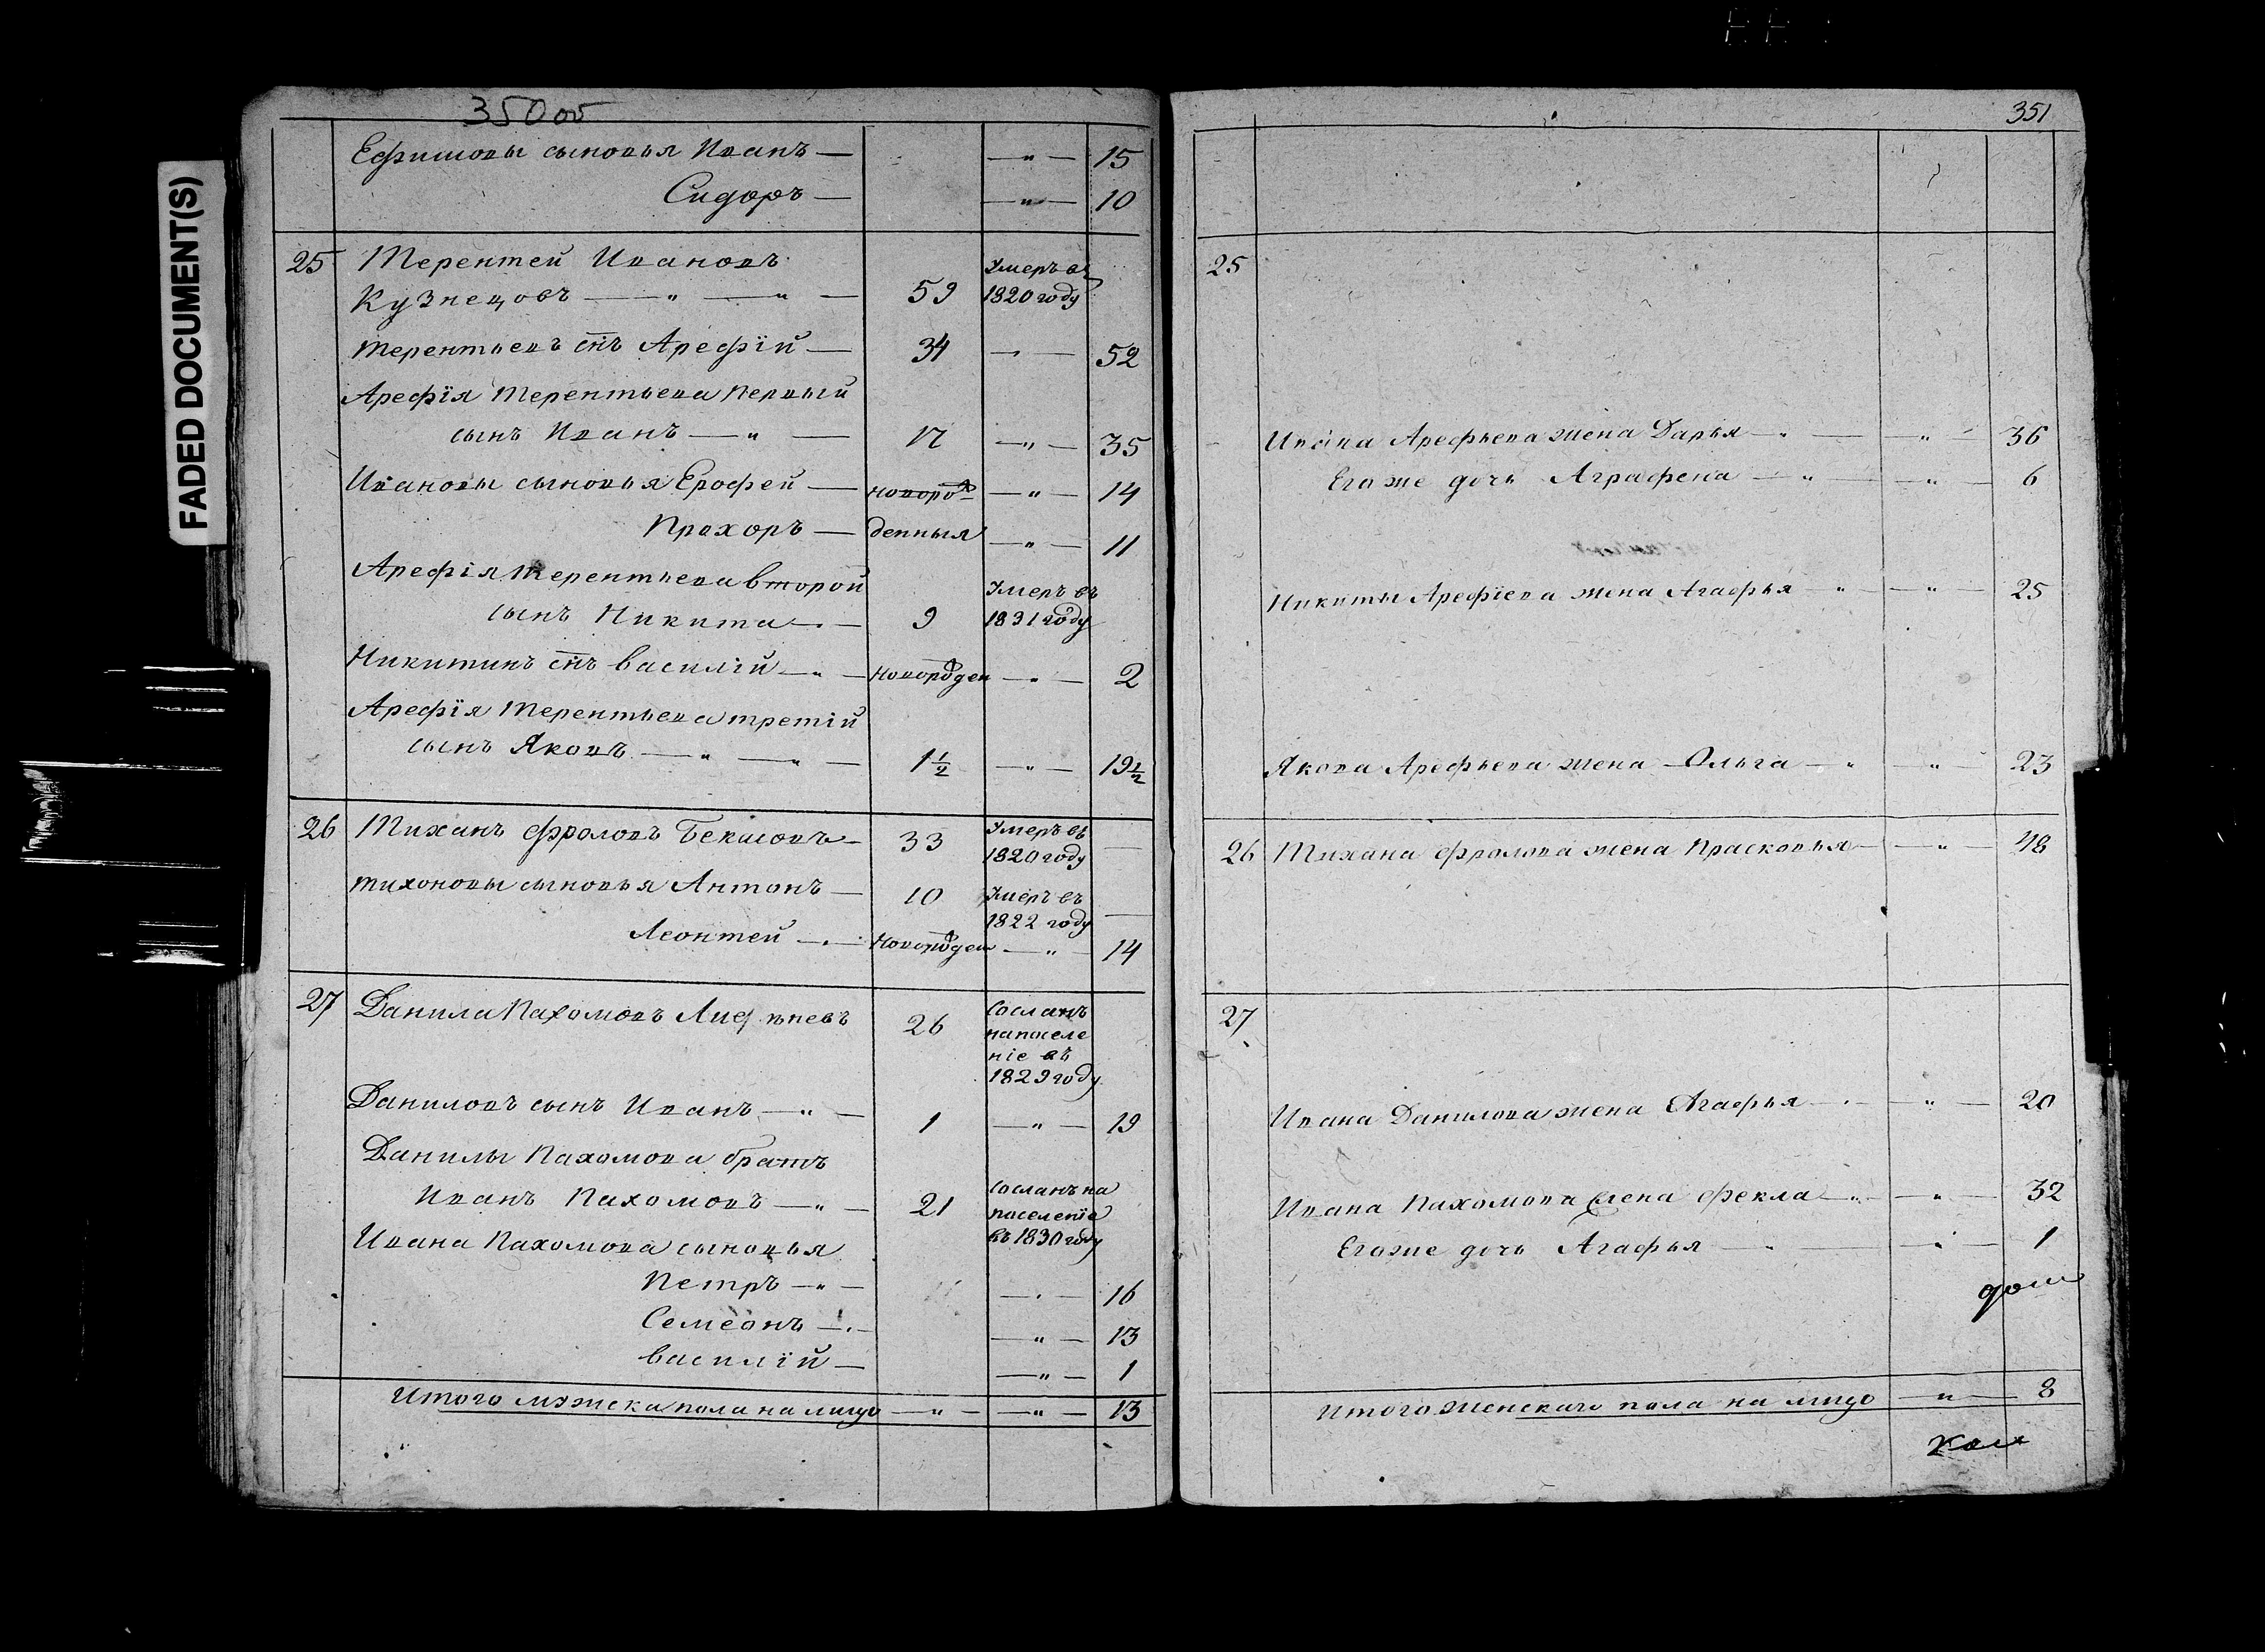 FADED DOCUMENT(S)
350об
Ефимовы сыновья Иванъ — — „ — 15
Сидоръ — — „ — 10
25 Терентей Ивановъ
Кузнецовъ — „ — „ — 59 Умеръ въ 1820 году
Терентьевъ снъ Арефїй — 34 — „ — 52
Арефїя Терентьева первый
сынъ Иванъ — „ — 17 — „ — 35
Ивановы сыновья Ерофей — новорож — „ — 14
Прохоръ — денныя — „ — 11
Арефїя Терентьева второй
сынъ Никита — „ — 9 Умеръ въ 1831 году
Никитинъ снъ василїй — „ — новорожден — „ — 2
Арефїя Терентьева третїй
сынъ Яковъ — „ — „ — 1½ — „ — 19½
26 Тиханъ Фроловъ Бекшовъ — 33 Умеръ въ 1820 году —
тихоновы сыновья Антонъ — 10 Умеръ въ 1822 году —
Леонтей — „ — новорожден — „ — 14
27 Данила Пахомовъ 26 Сосланъ
на поселе
нїе въ
1829 году
Даниловъ сынъ Иванъ — „ — 1 — „ — 19
Данилы Пахомова братъ
Иванъ Пахомовъ — „ — 21 Сосланъ на
поселенїе
въ 1830 году
Ивана Пахомова сыновья
Петръ — „ — — „ — 16
Семеонъ — „ — — „ — 13
василїй — — „ — 1
Итого мужска пола на лицо — „ — — „ — 13
351
25
Ивана Арефьева жена Дарья — „ — — „ — 36
Его же дочь Аграфена — „ — — „ — 6
Никиты Арефїева жена Агафья — „ — — „ — 25
Якова Арефьева жена Ольга — „ — „ — 23
26 Тихана Фролова жена Прасковья — — „ — 48
27
Ивана Данилова жена Агафья — „ — — „ — 20
Ивана Пахомова жена Фекла — „ — — „ — 32
Его же дочь Агафья — „ — „ — 1
Итого Женскаго пола на лицо — „ — 8